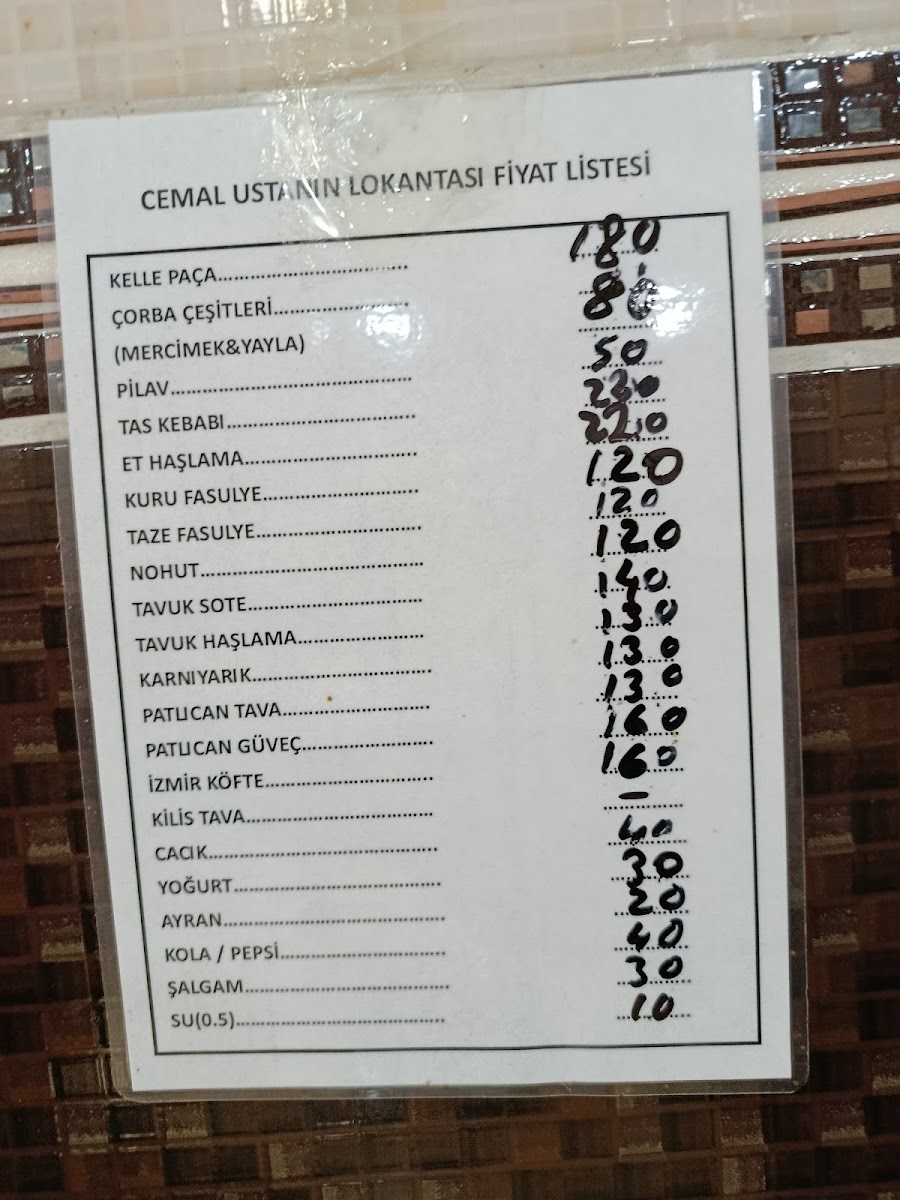 CEMAL USTANIN LOKANTASI FİYAT LİSTESİ
KELLE PAÇA.................................... 180
ÇORBA ÇEŞİTLERİ........................... 80
(MERCİMEK&YAYLA)
PİLAV............................................. 50
TAS KEBABI................................... 220
ET HAŞLAMA................................ 220
KURU FASULYE............................. 120
TAZE FASULYE............................... 120
NOHUT.......................................... 120
TAVUK SOTE................................. 140
TAVUK HAŞLAMA........................ 130
KARNIYARIK.................................. 130
PATLICAN TAVA............................ 130
PATLICAN GÜVEÇ......................... 160
İZMİR KÖFTE................................ 160
KİLİS TAVA................................... -
CACIK.......................................... 40
YOĞURT....................................... 30
AYRAN......................................... 20
KOLA / PEPSİ................................ 40
ŞALGAM...................................... 30
SU(0.5)........................................ 10